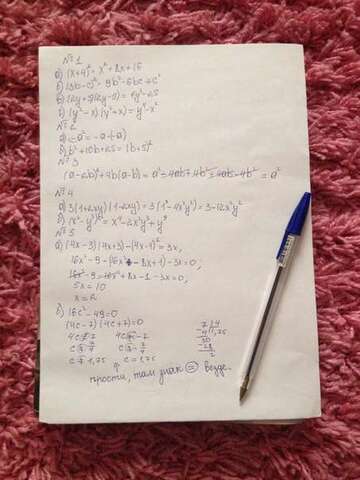 №1
а) (x+4)² = x² + 8x + 16
б) (3b-c)² = 9b² - 6bc + c²
в) (2y+5)(2y-5) = 4y² - 25
г) (y²-x)(y²+x) = y⁴ - x²
№2
б) b² + 10b + 25 = (b+5)²
№3
(a-2b)² + 4b(a-b) = a² - 4ab + 4b² + 4ab - 4b² = a²
№4
а) 3(1+2xy)(1-2xy) = 3(1-4x²y²) = 3-12x²y²
б) (x²-y³)² = x⁴ - 2x²y³ + y⁶
№5
а) (4x-3)(4x+3) - (4x-1)² = 3x,
16x² - 9 - (16x² - 8x + 1) - 3x = 0,
16x² - 9 - 16x² + 8x - 1 - 3x = 0,
5x = 10
x = 2
б) 16c² - 49 = 0
(4c-7)(4c+7) = 0
4c = 7 4c = -7
c = 7/4 c = -7/4
c = 1,75 c = 1,75
7 4
4 1,75
30
28
2
прости, там знак = везде.